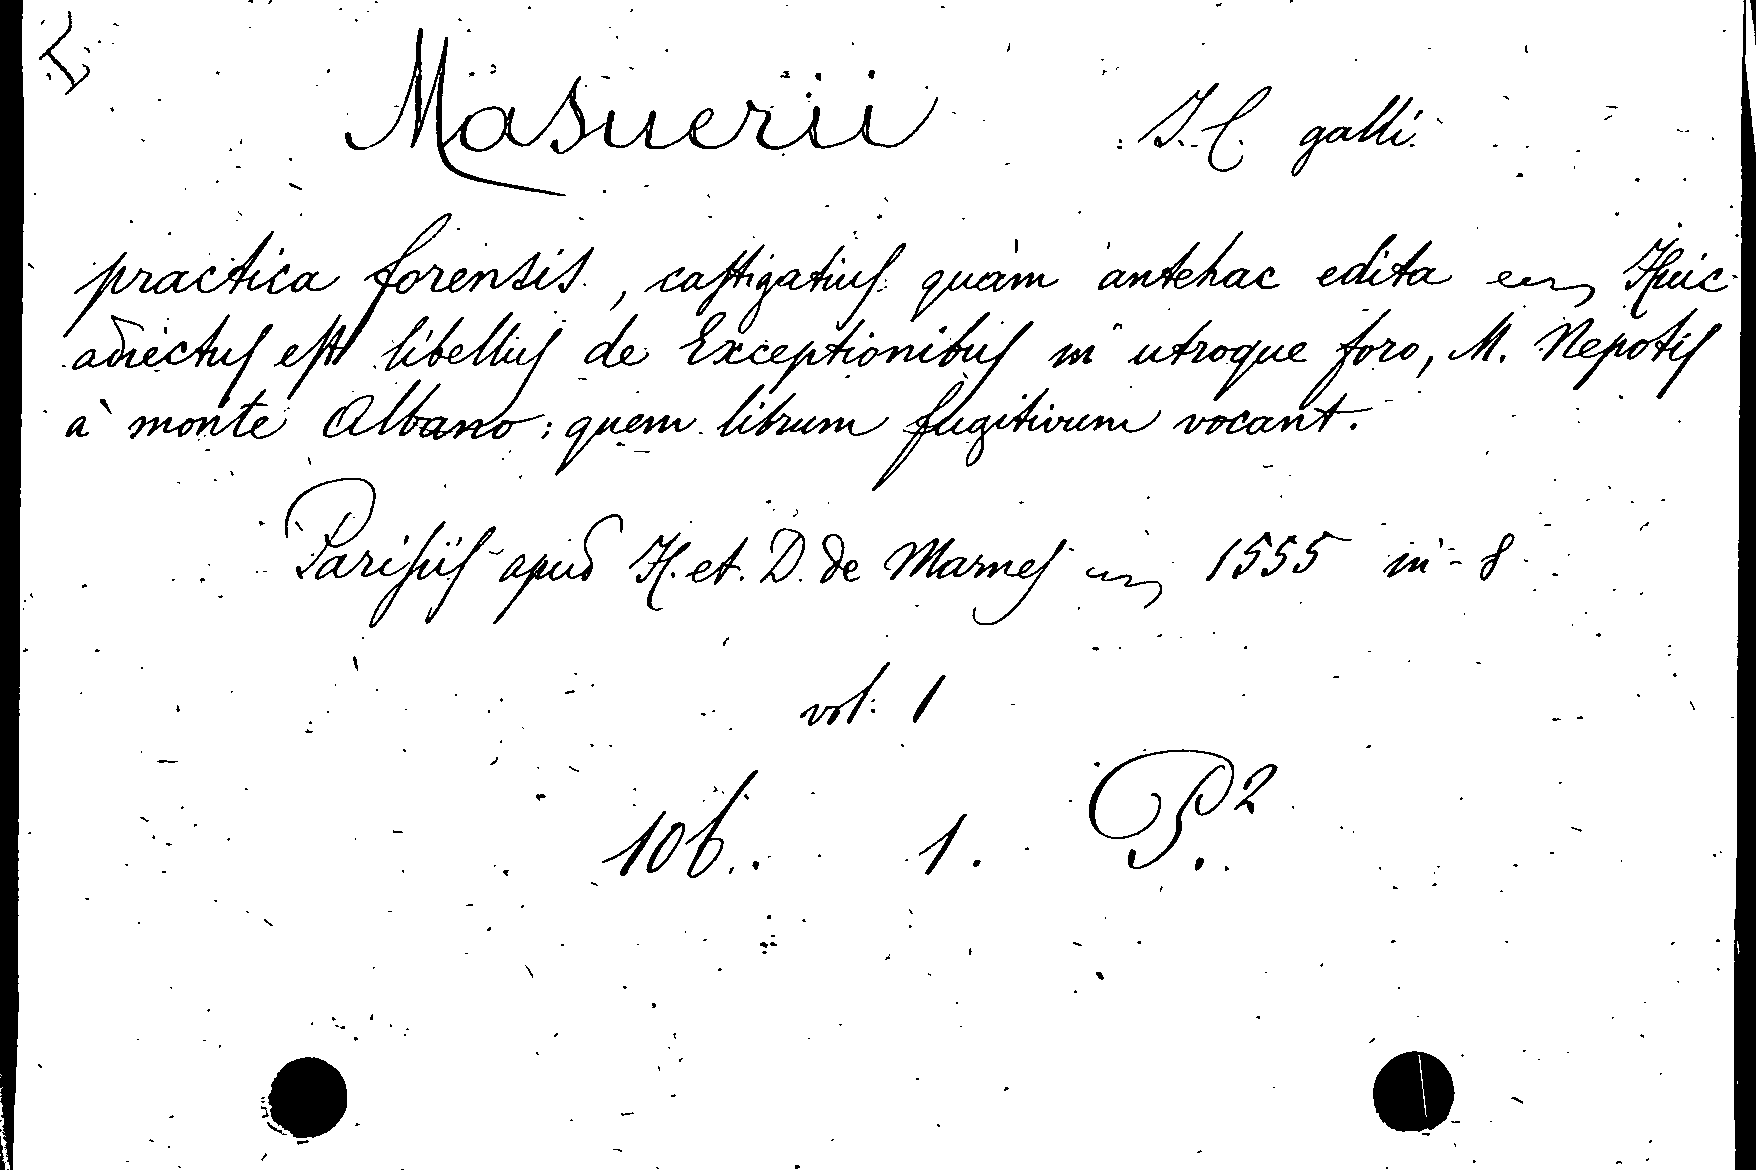 I
Masuerii J. C. galli.
practica forensis, castigatius quàm antehac edita Huic
adiectus est libellus de Exceptionibus in utroque foro, M. Nepotis
à monte Albano: quem librum fugitivum vocant.
Parisiis apud H. et. D. de Marnes 1555 in-8
vol. 1
106. 1. P.2